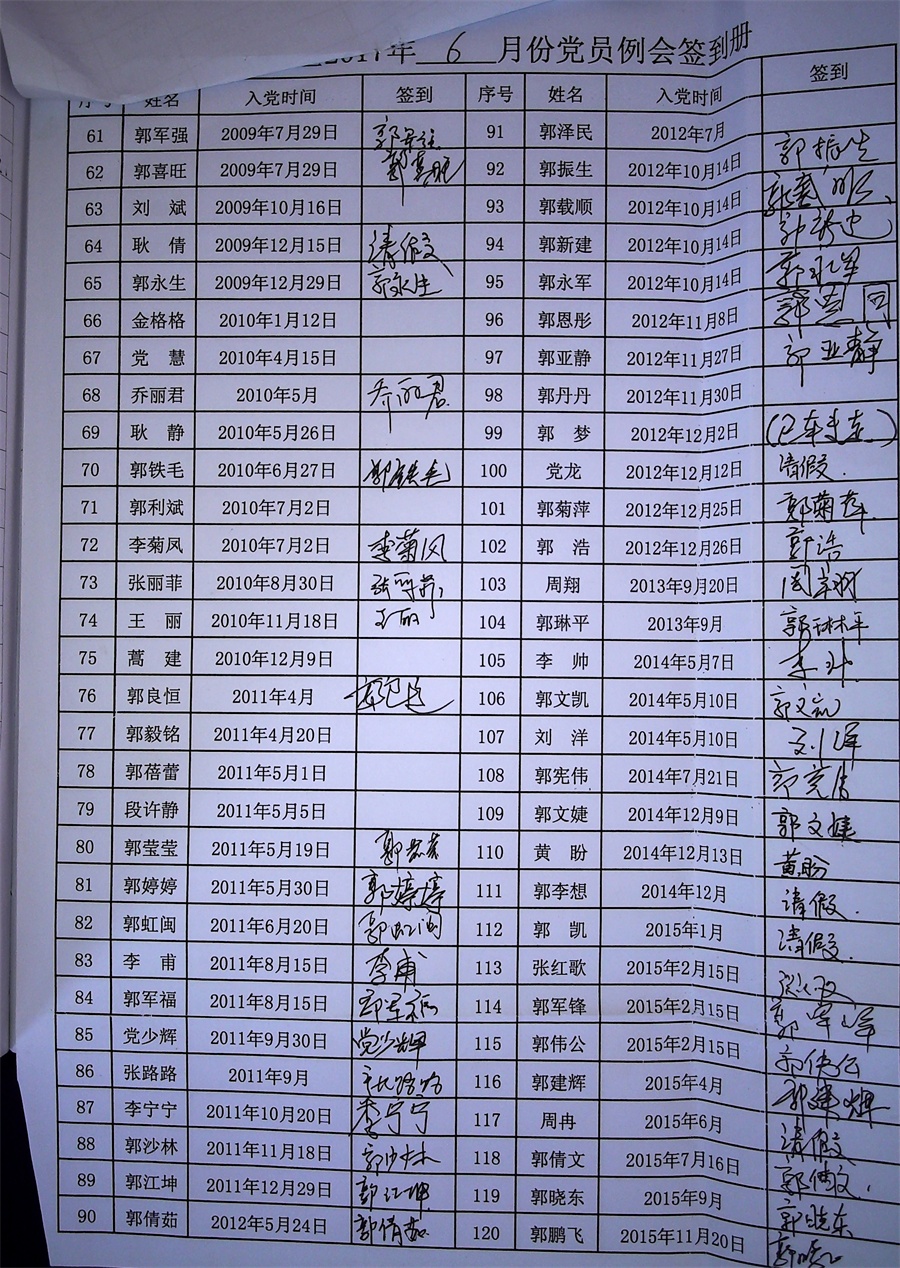 2017年 6 月份党员例会签到册
序号 姓名 入党时间 签到 序号 姓名 入党时间 签到
61 郭军强 2009年7月29日 郭军强 91 郭泽民 2012年7月
62 郭喜旺 2009年7月29日 郭喜旺 92 郭振生 2012年10月14日 郭振生
63 刘 斌 2009年10月16日 93 郭载顺 2012年10月14日 郭载顺
64 耿 倩 2009年12月15日 请假 94 郭新建 2012年10月14日 郭新建
65 郭永生 2009年12月29日 郭永生 95 郭永军 2012年10月14日 郭永军
66 金格格 2010年1月12日 96 郭恩彤 2012年11月8日 郭恩
67 党 慧 2010年4月15日 97 郭亚静 2012年11月27日 郭亚静
68 乔丽君 2010年5月 乔丽君 98 郭丹丹 2012年11月30日
69 耿 静 2010年5月26日 99 郭 梦 2012年12月2日
70 郭铁毛 2010年6月27日 郭铁毛 100 党龙 2012年12月12日 请假.
71 郭利斌 2010年7月2日 101 郭菊萍 2012年12月25日 郭菊萍
72 李菊凤 2010年7月2日 李菊凤 102 郭 浩 2012年12月26日 郭浩
73 张丽菲 2010年8月30日 张丽菲 103 周翔 2013年9月20日 周翔
74 王 丽 2010年11月18日 王丽 104 郭琳平 2013年9月 郭琳平
75 蒿 建 2010年12月9日 105 李 帅 2014年5月7日 李帅
76 郭良恒 2011年4月 106 郭文凯 2014年5月10日 郭文凯
77 郭毅铭 2011年4月20日 107 刘 洋 2014年5月10日 刘洋
78 郭蓓蕾 2011年5月1日 108 郭宪伟 2014年7月21日
79 段许静 2011年5月5日 109 郭文婕 2014年12月9日 郭文婕
80 郭莹莹 2011年5月19日 郭莹莹 110 黄 盼 2014年12月13日 黄盼
81 郭婷婷 2011年5月30日 郭婷婷 111 郭李想 2014年12月 请假.
82 郭虹闽 2011年6月20日 郭虹闽 112 郭 凯 2015年1月 请假.
83 李 甫 2011年8月15日 李甫 113 张红歌 2015年2月15日
84 郭军福 2011年8月15日 郭军福 114 郭军锋 2015年2月15日 郭军峰
85 党少辉 2011年9月30日 党少辉 115 郭伟公 2015年2月15日 郭伟公
86 张路路 2011年9月 张路路 116 郭建辉 2015年4月 郭建辉
87 李宁宁 2011年10月20日 李宁宁 117 周冉 2015年6月 请假
88 郭沙林 2011年11月18日 郭沙林 118 郭倩文 2015年7月16日 郭倩文.
89 郭江坤 2011年12月29日 郭江坤 119 郭晓东 2015年9月 郭晓东
90 郭倩茹 2012年5月24日 郭倩茹 120 郭鹏飞 2015年11月20日